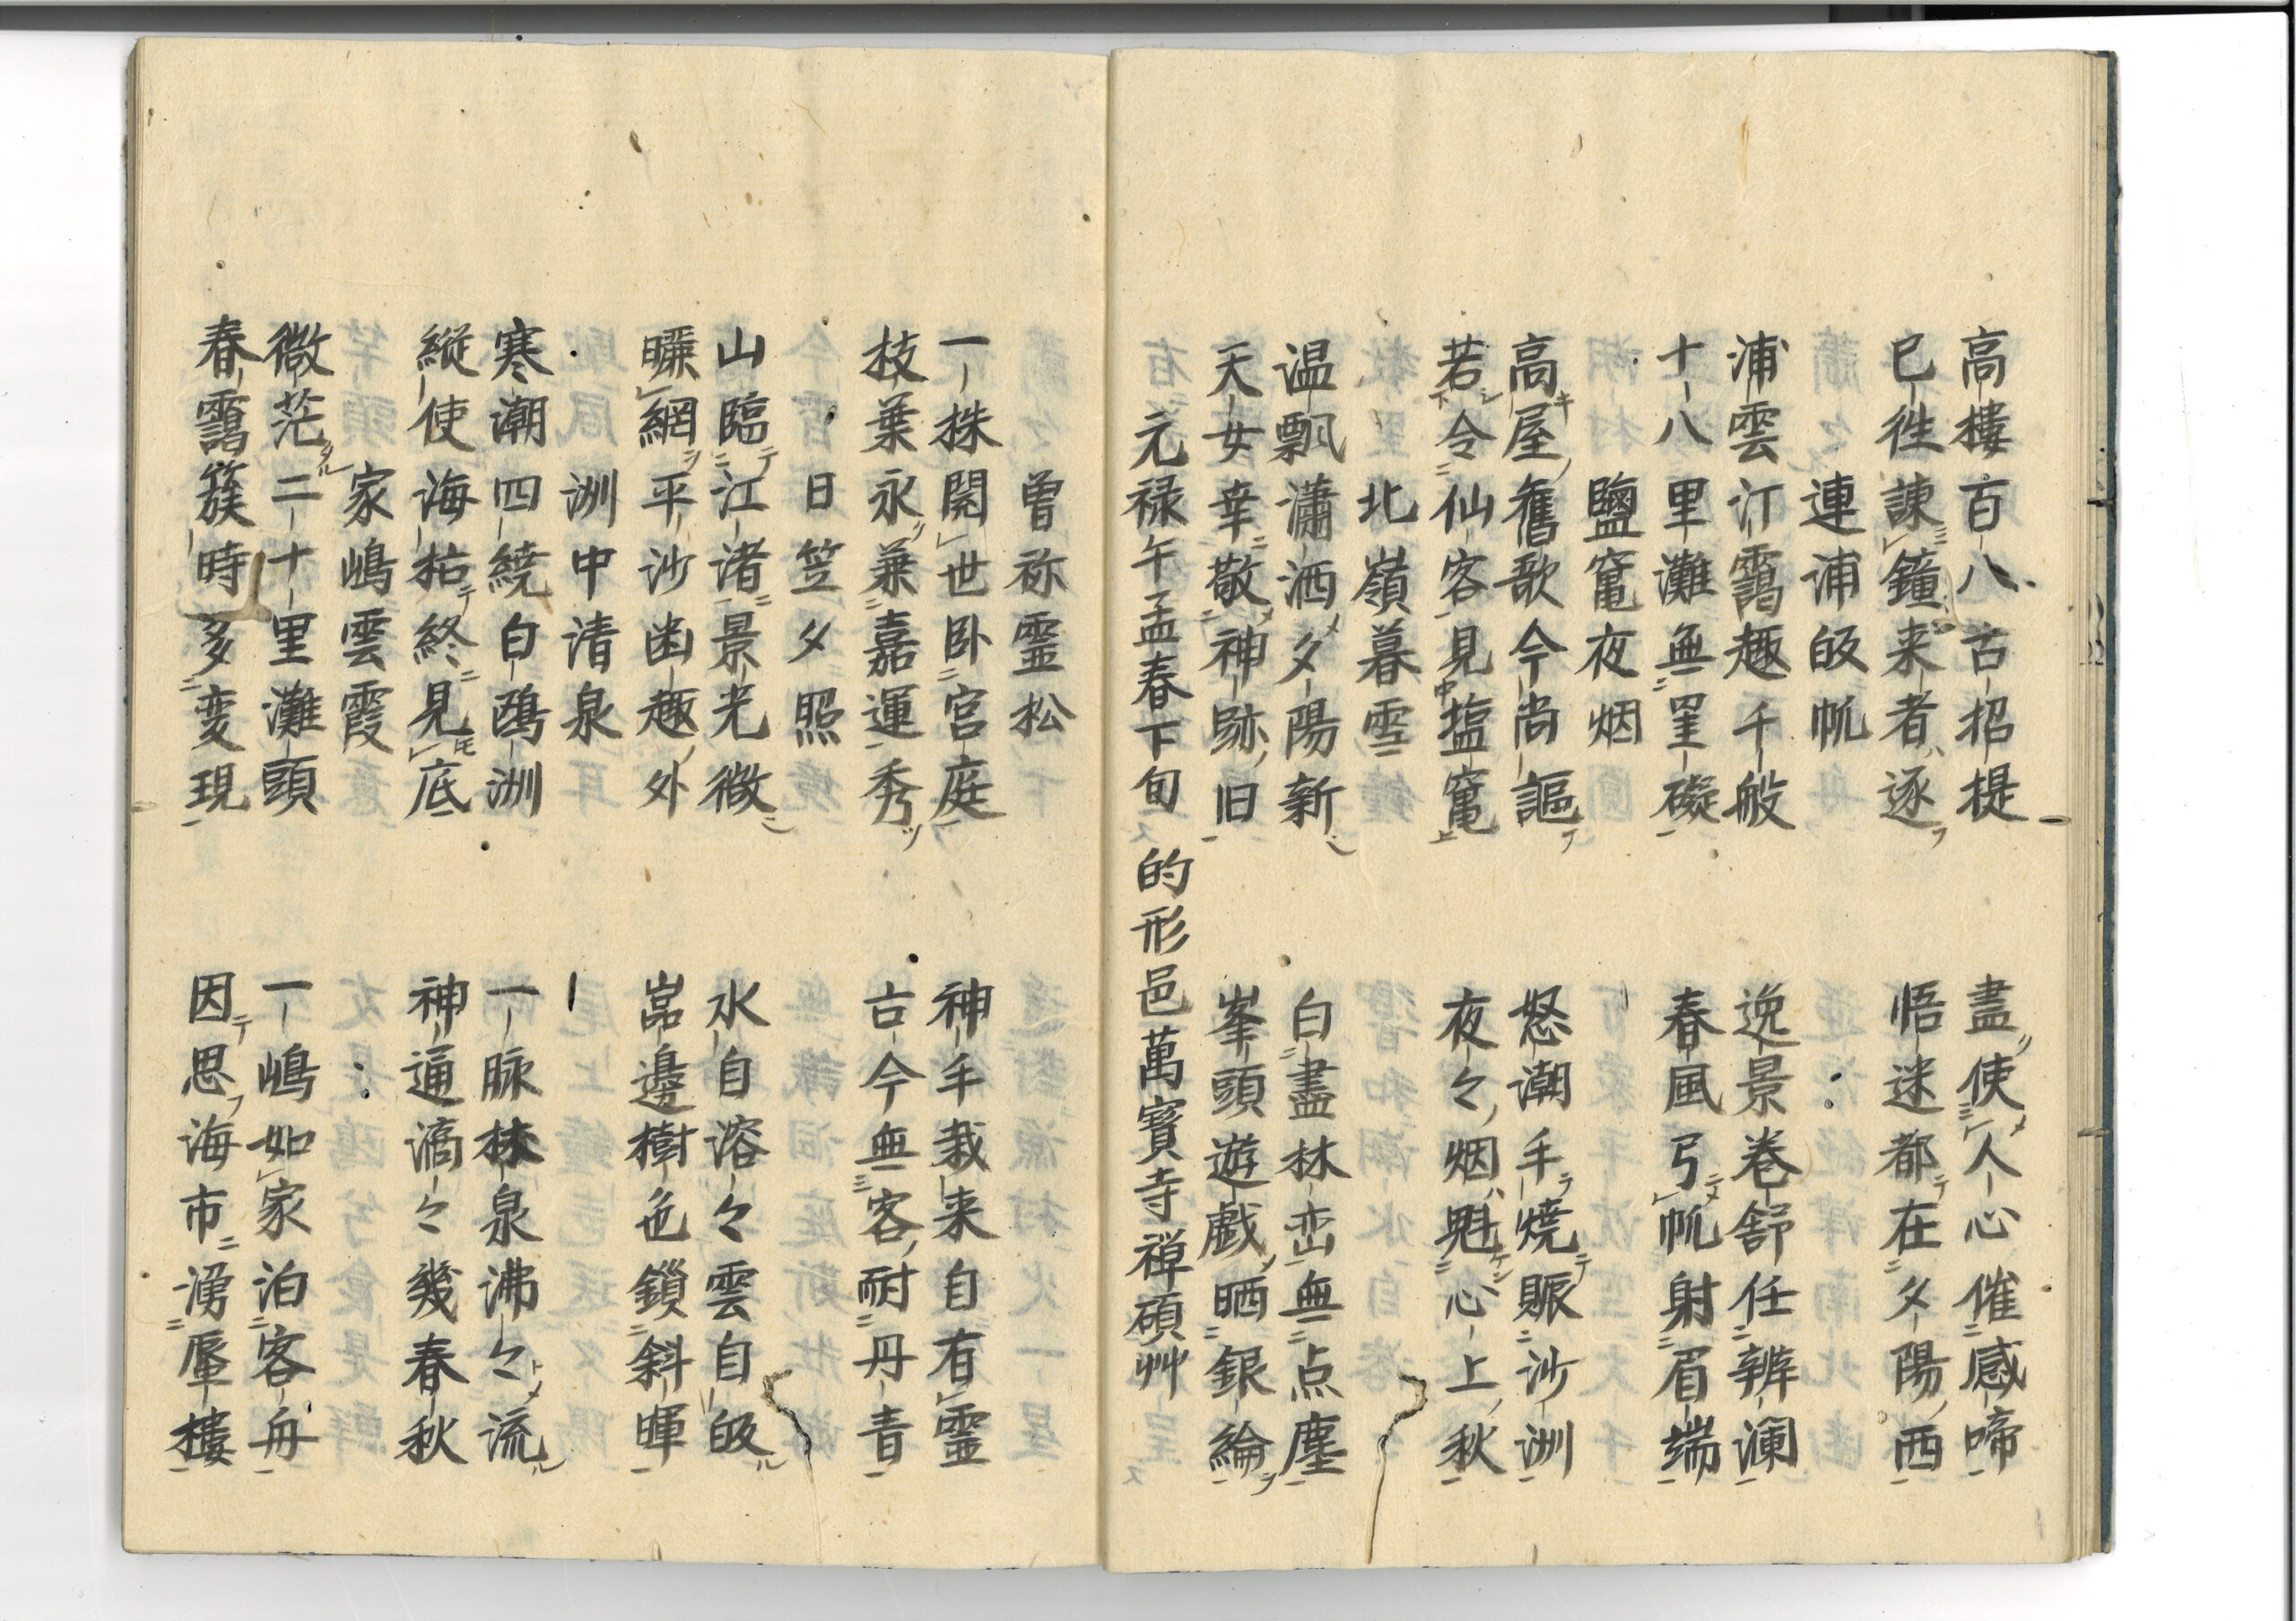 高樓百八古招提　盡使人心催感啼
已往諌鐘来者逐　悟迷都在夕陽西
連浦皈帆
浦雲汀靄趣千般　逸景巻舒任辨瀾
十八里灘無罣礙　春風弓帆射眉端
鹽竃夜烟
高屋舊歌今尚謳　怒潮手焼賑沙洲
若令仙客見塩竃　夜々烟魁心上秋
北嶺暮雪
温飄瀟洒夕陽新　白盡林巒無点塵
天女幸敬神跡旧　峯頭遊戯晒銀綸
元禄午孟春下旬　的形邑萬寳寺禅碩艸
曽祢霊松
一株閲世卧宮庭　神手栽来自有霊
枝葉永兼嘉運秀　古今無客耐丹青
日笠夕照
山臨江渚景光微　水自溶々雲自皈
曝網平沙幽趣外　嵓邊樹色鎖斜暉
洲中清泉
寒潮四繞白鴎洲　一脉林泉沸々流
縦使海枯終見底　神通滴々幾春秋
家嶋雲霞
微茫二十里灘頭　一嶋如家泊客舟
春靄簇時多変現　因思海市湧蜃樓